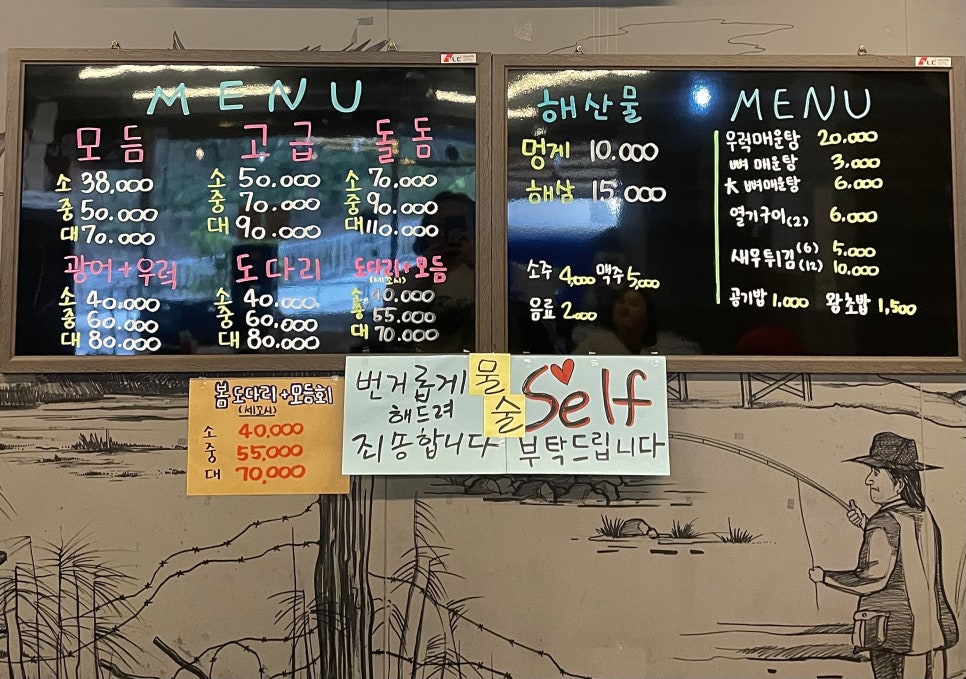 MENU
모듬
소 38,000
중 50.000
대 70.000
고급
소 50.000
중 70.000
대 90.000
돌돔
소 70.000
중 90.000
대 110.000
광어+우럭
소 40.000
중 60.000
대 80.000
도다리
소 40.000
중 60.000
대 80.000
도다리+모듬
(세꼬시)
소 40.000
중 55.000
대 70.000
해산물
멍게 10.000
해삼 15.000
소주 4,000 맥주 5,000
음료 2,000
MENU
우럭매운탕 20.000
뼈 매운탕 3.000
大 뼈매운탕 6.000
열기구이(2) 6.000
새우튀김 (6) 5.000
(12) 10.000
공기밥 1,000 왕초밥 1,500
봄 도다리+모듬회
(세꼬시)
소 40.000
중 55.000
대 70.000
번거롭게
해드려
죄송합니다
물
술
Self
부탁드립니다